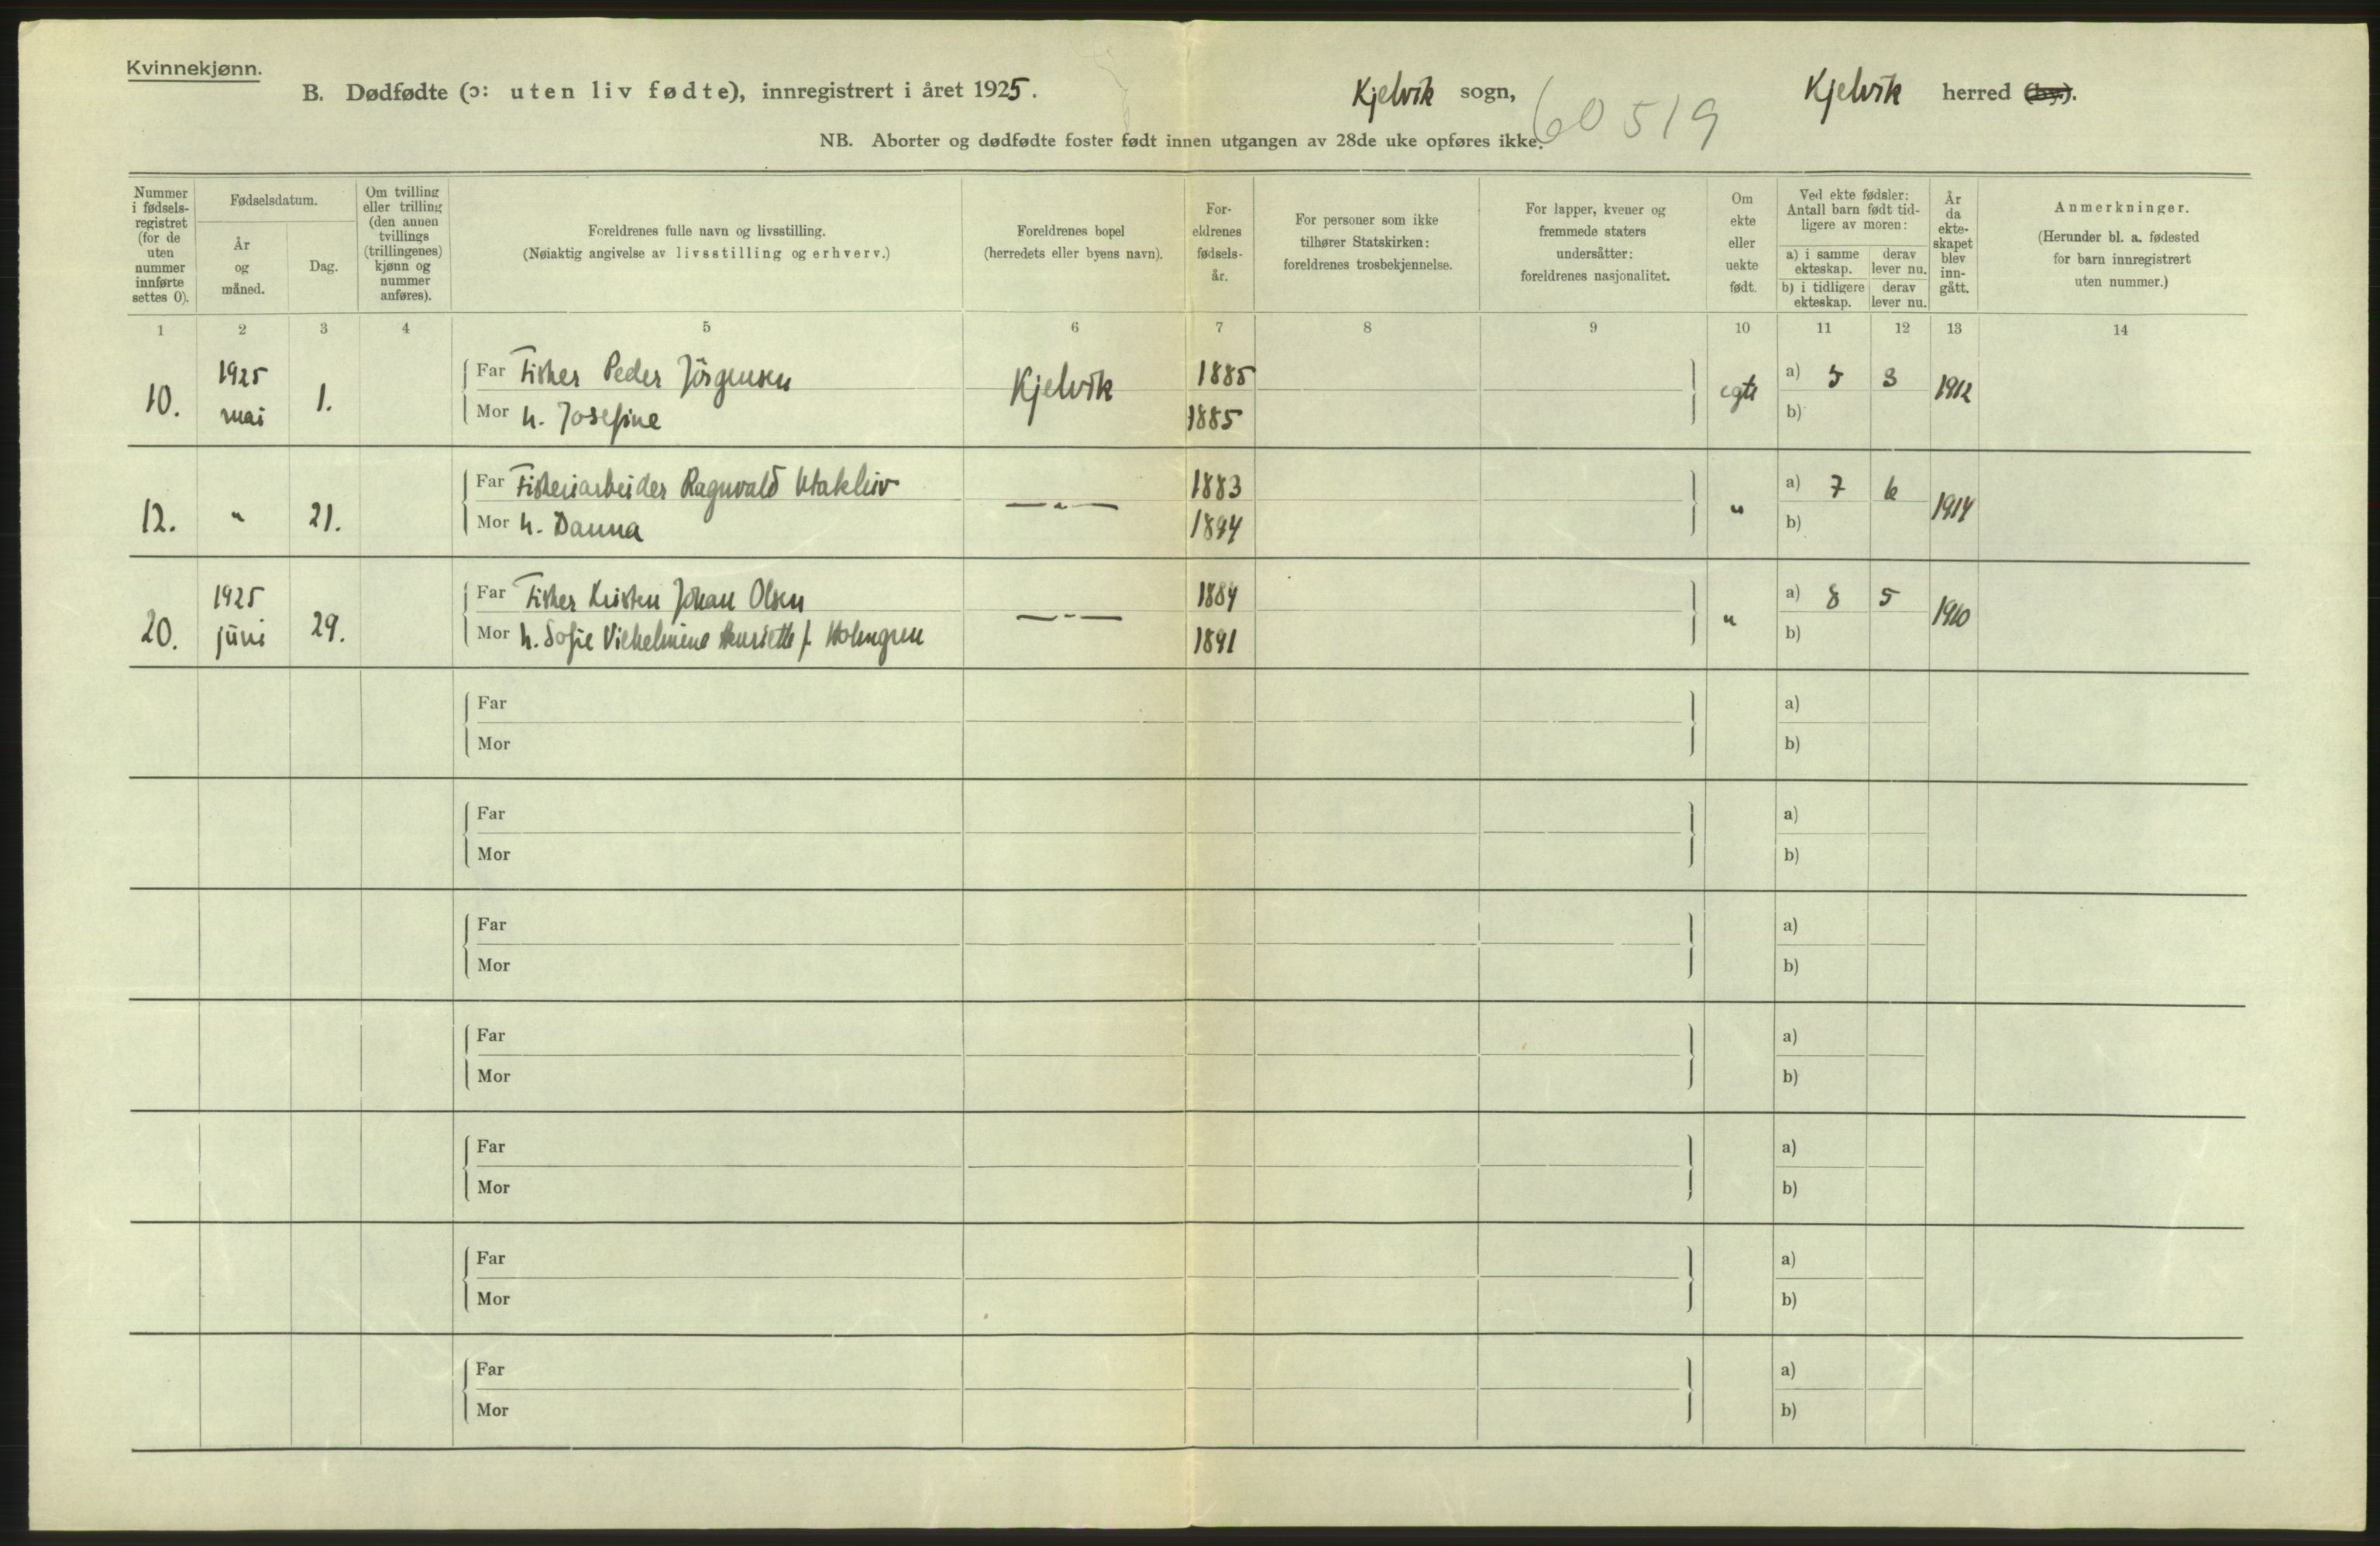 Kvinnekjønn.
B. Dødfødte (ɔ: uten liv fødte), innregistrert i året 1925. Kjelvik sogn, Kjelvik herred (by).
60519
NB. Aborter og dødfødte foster født innen utgangen av 28de uke opføres ikke.
Nummer i fødsels-registret (for de uten nummer innførte settes 0).
Fødselsdatum.
År og måned.
Dag.
Om tvilling eller trilling (den annen tvillings (trillingenes) kjønn og nummer anføres).
Foreldrenes fulle navn og livsstilling.
(Nøiaktig angivelse av livsstilling og erhverv.)
Foreldrenes bopel
(herredets eller byens navn).
For-eldrenes fødsels-år.
For personer som ikke tilhører Statskirken: foreldrenes trosbekjennelse.
For lapper, kvener og fremmede staters undersåtter: foreldrenes nasjonalitet.
Om ekte eller uekte født.
Ved ekte fødsler: Antall barn født tid-ligere av moren:
a) i samme ekteskap. derav lever nu.
b) i tidligere ekteskap. derav lever nu.
År da ekte-skapet blev inn-gått.
Anmerkninger.
(Herunder bl. a. fødested for barn innregistrert uten nummer.)
1 2 3 4 5 6 7 8 9 10 11 12 13 14
10. 1925 mai 1. Far Fisker Peder Jörgensen Kjelvik 1885 egte a) 5 3 1912
Mor h. Josefine 1885 b)
12. " 21. Far Fiskeriarbeider Ragnvald Utakleiv —"— 1883 " a) 7 6 1914
Mor h. Danna 1894 b)
20. 1925 juni 29. Far Fisker Kristen Johan Olsen —"— 1884 " a) 8 5 1910
Mor h. Sofie Vilhelmine Henriette f. Holmgren 1891 b)
Far a)
Mor b)
Far a)
Mor b)
Far a)
Mor b)
Far a)
Mor b)
Far a)
Mor b)
Far a)
Mor b)
Far a)
Mor b)